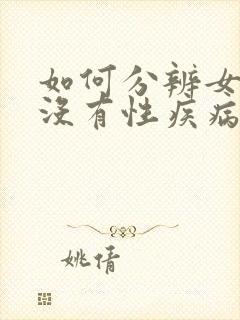 如何分辨女
没有性疾病
姚倩